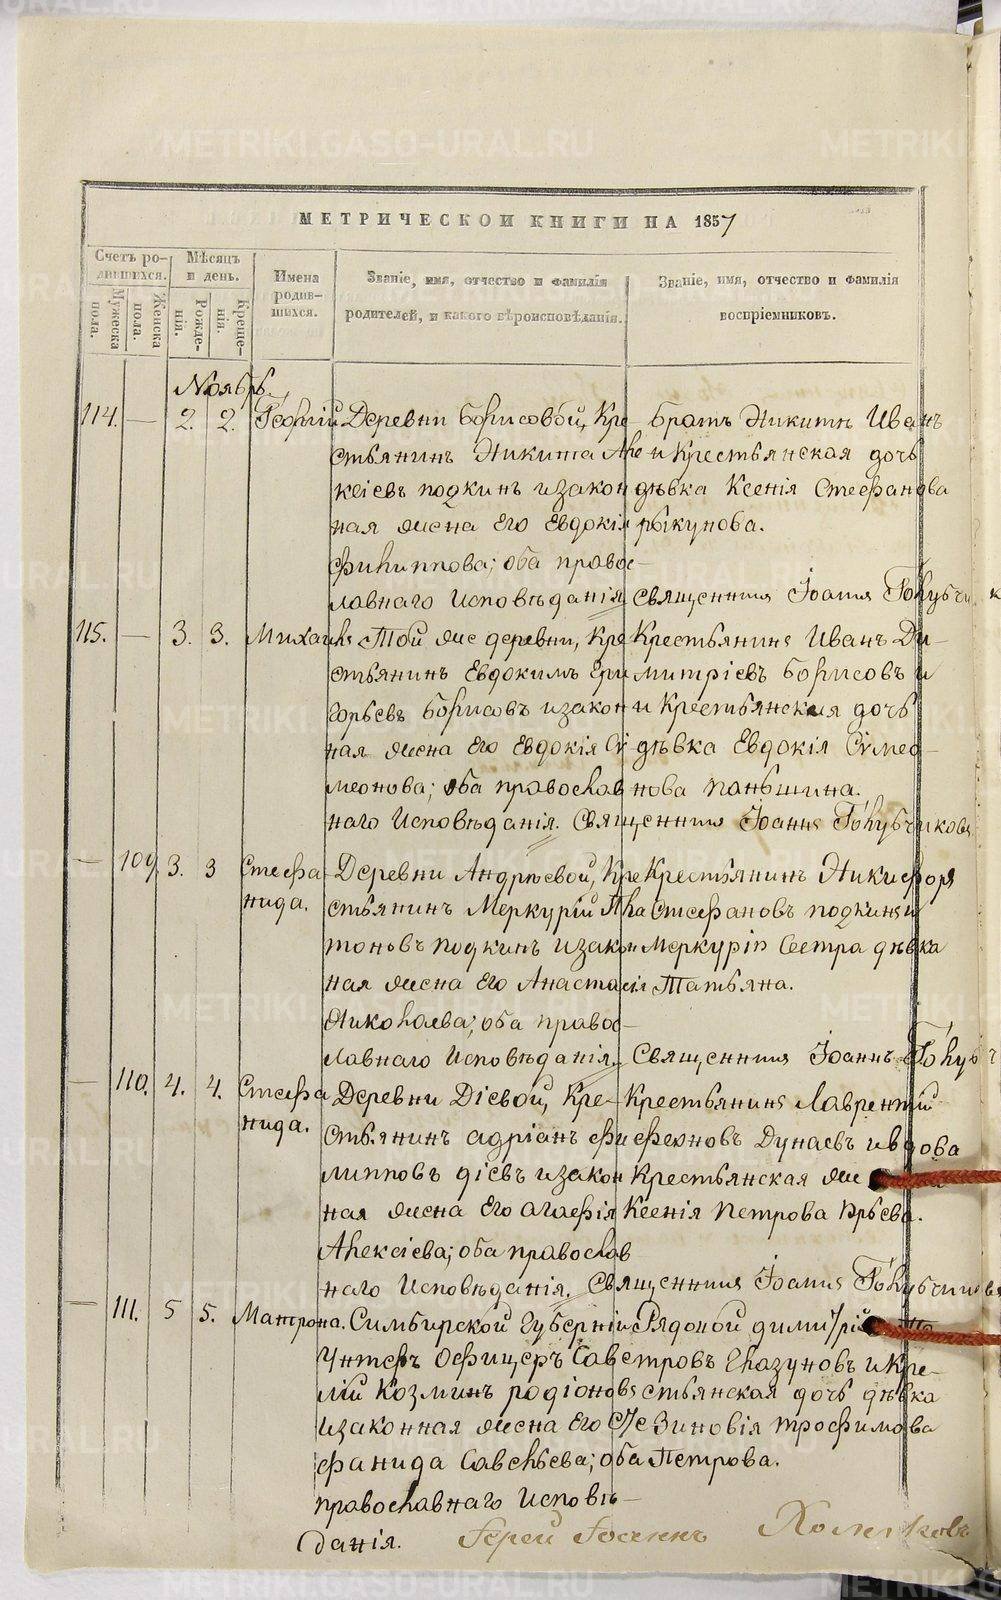 МЕТРИЧЕСКОЙ КНИГИ НА 1857
Счетъ ро-
дившихся.
Мужеска
пола.
Женска
пола.
Мѣсяцъ
и день.
Рожде-
нія.
Креще-
нія.
Имена
родив-
шихся.
Званіе, имя, отчество и фамилія
родителей, и какого вѣроисповѣданія.
Званіе, имя, отчество и фамилія
воспріемниковъ.
Ноябрь
114. — 2. 2. Георгій
Деревни Борисовой, Кре-
стьянинъ Никита Але
ксіевъ подкинъ и закон
ная жена его Евдокія
Филиппова; оба правос-
лавнаго исповѣданія.
Братъ Никиты Иванъ
и Крестьянская дочь
дѣвка Ксенія Стефанова
рыкунова.
Священникъ Іоаннъ Голубчик
115. — 3. 3. Михаилъ
Той же деревни, Кре
стьянинъ Евдокимъ Гри
горьевъ Борисовъ и закон
ная жена его Евдокія Си
меонова; оба православ
наго исповѣданія.
Крестьянинъ Иванъ Ди-
митріевъ Борисовъ и
и Крестьянская дочь
дѣвка Евдокія Симео-
нова паньшина.
Священникъ Іоаннъ Голубчиковъ
— 109. 3. 3 Стефа-
нида.
Деревни Андрюевой, Кре
стьянинъ Меркурій Пла
тоновъ подкинъ и закон
ная жена его Анастасія
Николаева; оба правос-
лавнаго исповѣданія.
Крестьянинъ Никифоръ
Стефановъ подкинъ и
Меркурія сестра дѣвка
Татьяна.
Священникъ Іоаннъ Голубч
— 110. 4. 4. Стефа
нида.
Деревни Діевой, Кре-
стьянинъ Адріанъ Фи
липповъ діевъ и закон
ная жена его Агафія
Алексіева; оба православ
наго исповѣданія.
Крестьянинъ Лаврентій
Дунаевъ и вдова
Крестьянская же
Ксенія Петрова
Священникъ Іоаннъ Голубчиковъ
— 111. 5 5. Матрона.
Симбирской Губерніи
Унтеръ Офицеръ Савe
лій Козминъ родіоновъ
и законная жена его Сте
фанида Савельева; оба
православнаго исповѣ-
данія.
Рядовой Димитрій
Петровъ Глазуновъ и Кре-
стьянская дочь дѣвка
Зиновія Трофимова
Петрова.
Іерей Іоаннъ Хомяковъ
METRIKI.GASO-URAL.RU